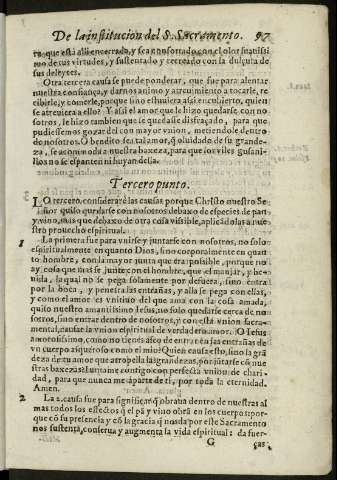 De la institucion del S. Sacramento. 97
to, que está alli encerrada, y sea confortado con el olor suauissi
mo de tus virtudes, y sustentado y recreado con la dulçura de
tus deleytes.
Otra tercera causa se puede ponderar, que fue para alentar
nuestra confiança, y darnos animo y atreuimiento a tocarle, re
cibirle, y comerle, porque sino estuuiera assi encubierto, quien
se atreuiera a ello? Y assi el amor que le hizo quedarse con no
sotros, le hizo tambien que se quedasse disfraçado, para que
pudiessemos gozar del con mayor vnion, metiendole dentro
de nosotros. O bendito sea tal amor, que oluidado de su grande
za, se acomoda a nuestra baxeza, para que los viles gusani-
llos no se espanten ni huyan della.
Tercero punto.
LO tercero, considerarè las causas porque Christo nuestro Se
ñor quiso quedarse con nosotros debaxo de especies de pan
y vino, mas que debaxo de otra cosa visible, aplicandolas a nuestro
prouecho espiritual.
1 La primera fue para vnirse y juntarse con nosotros, no solo
espiritualmente en quanto Dios, sino corporalmente en quan
to hombre, con la mayor junta que era possible, porque no
ay cosa que mas se junte con el hombre, que el manjar, y be-
uida, la qual no se pega solamente por defuera, sino entra
por la boca, y penetra las entrañas, y alla se pega con ellas,
y como el amor es vnitiuo del que ama con la cosa amada,
quiso nuestro amantissimo Iesus, no solo quedarse cerca de no
sotros, sino entrar dentro de nosotros, y con esta vnion sacra-
mental, causar la vnion espiritual de verdadero amor. O Iesus
amorosissimo, como no tienes asco de entrar en las entrañas de
vn cuerpo asqueroso como el mio? Quien causa esto, sino la grã
deza de tu amor que atropella las grandezas, por juntarse cõ nues
tras baxezas? Iuntame contigo con perfecta vnion de chari-
dad, para que nunca me aparte de ti, por toda la eternidad.
Amen.
2 La 2. causa fue para significar q̃ obraua dentro de nuestras al
mas todos los effectos q̃ el pã y vino obrã en los cuerpos: por-
que cõ su presencia y cõ la gracia q̃ nos da por este Sacramento
nos sustenta, conserua y augmenta la vida espiritual: da fuer-
G ças